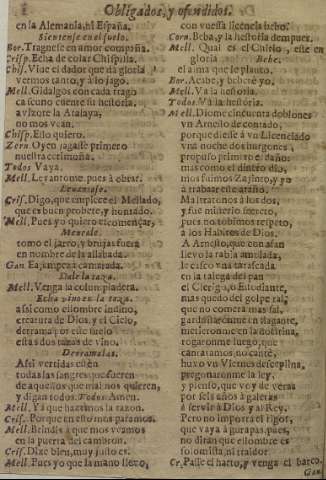 Obligados, y ofendidos.
en la Alemania, ni España.
Sientense en el suelo.
Bor. Traguese en amor compaña.
Crisp. Echa de colar Chispilla.
Chis. Viue el dador que da gloria
Vernos tanto, y a lo jago.
Mell. Gidalgos con cada trago
cascuno cuente su hestoria.
avizore la Atalaya,
no mos vean.
Chisp. Esso quiero.
Zorn. Oyen jagasse primero
nuestra cerimoña.
Todos. Vaya.
Mell. Leuantome, pues a obrar.
Leuantase.
Cris. Digo, que empiece el Mellado,
que es buen probete, y honrado.
Mell. Pues yo quiero començar,
Meneale.
tomo el jarro, y brujas fuera
en nombre de la
Gan. Ea, empieça camarada.
Dale la taza.
Mell. Venga la columpiadera.
Echa vino en la taza.
assi como esso hombre indino,
creatura de Dios, y el Cielo,
derrama por esse suelo
estas dos tazas de vino.
Derramalas.
Assi vertidas estén
todas las sangres que fueren
de aquellos que mal nos quieren,
y digan todos. Todos. Amen.
Mell. Ya que hazemos la razon.
Cris. Porque en esso mos paramos.
Mell. Brindis a que mos veamos
en la puerta del cambron.
Cris. Dize bien, muy justo es.
Mell. Pues yo que la mano lleuo,
con vuessa licencia bebo.
Corn. Beba, y la hestoria dempues.
Mell. Qual es el Cuerlo, este en
gloria Bebe
el alma que le planto.
Bor. Acabe, y beberé yo.
Mell. Va la hestoria.
Todos. Va la hestoria.
Mell. Diome cincuenta doblones
vn Arnesto de contado,
porque diesse a vn Licenciado
vna noche dos hurgones,
propuso primero el daño:
mas como el dinero dio,
mos fuimos Zajinto, y yo
a trabar esse ataño.
Maltratonos a los dos,
y fue misterio secreto,
pues no tobimos respeto,
a los Habitos de Dios.
A Arnesto, que con afan
lleuo la rabia amolada,
le casco vna tarascada
en la talega del pan
el Clerigo, o Estodiante,
mas quedo del golpe tal,
que no comera mas sal,
gardassiaronme en flagante,
metieronme en la dotrina,
rogaronme luego, que
cantara, mos no canté,
huvo vn Viernes desceplina,
pregonaronme la ley,
y pienso, que voy de veras
por seis años a galeras
a servir a Dios y al Rey.
Pero no importa el rigor,
que vaya a gurapas, pues
no diran que el hombre es
solomista, ni traidor.
Cr. Passe el harto, y venga el barco.
Gan.